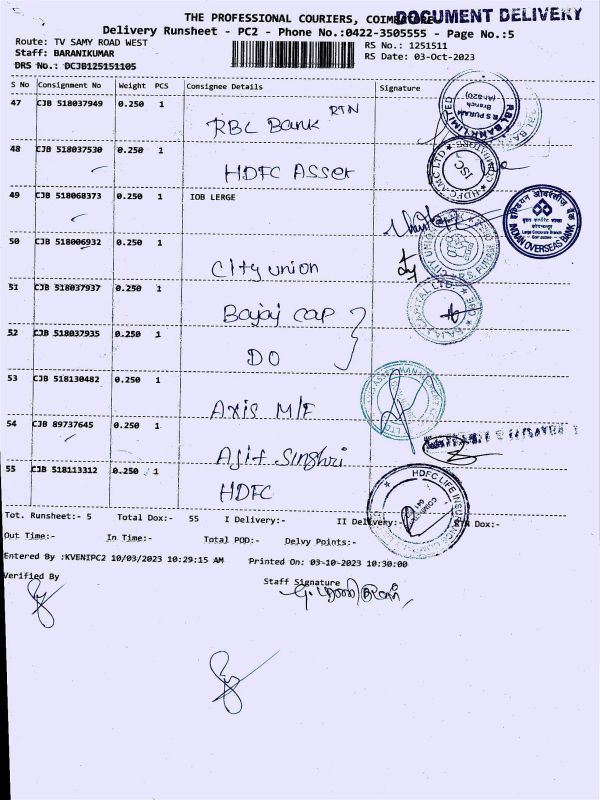 THE PROFESSIONAL COURIERS, COIMBATORE
DOCUMENT DELIVERY
Delivery Runsheet - PC2 - Phone No.:0422-3505555 - Page No.:5
Route: TV SAMY ROAD WEST
RS No.: 1251511
Staff: BARANIKUMAR
RS Date: 03-Oct-2023
DRS No.: DCJB125151105
S No Consignment No Weight PCS Consignee Details Signature
47 CJB 518037949 0.250 1 RBL Bank RTN
RBL BANK LIMITED
R S PURAM
Branch
48 CJB 518037530 0.250 1 HDFC Asset
HDFC AMC LTD
ISC
49 CJB 518068373 0.250 1 IOB LERGE
इण्डियन ओवरसीज़ बैंक
Large Corporate Branch
INDIAN OVERSEAS BANK
50 CJB 518006932 0.250 1 City union
CITY UNION
R.S. PURAM
51 CJB 518037937 0.250 1 Bajaj cap
BAJAJ CAPITAL LTD
52 CJB 518037935 0.250 1 DO
53 CJB 518130482 0.250 1 Axis M/F
54 CJB 89737645 0.250 1 Ajit Singhvi
55 CJB 518113312 0.250 1 HDFC
HDFC LIFE INSURANCE
Tot. Runsheet:- 5 Total Dox:- 55 I Delivery:- II Delivery:- RTN Dox:-
Out Time:- In Time:- Total POD:- Delvy Points:-
Entered By :KVENIPC2 10/03/2023 10:29:15 AM Printed On: 03-10-2023 10:30:00
Verified By Staff Signature